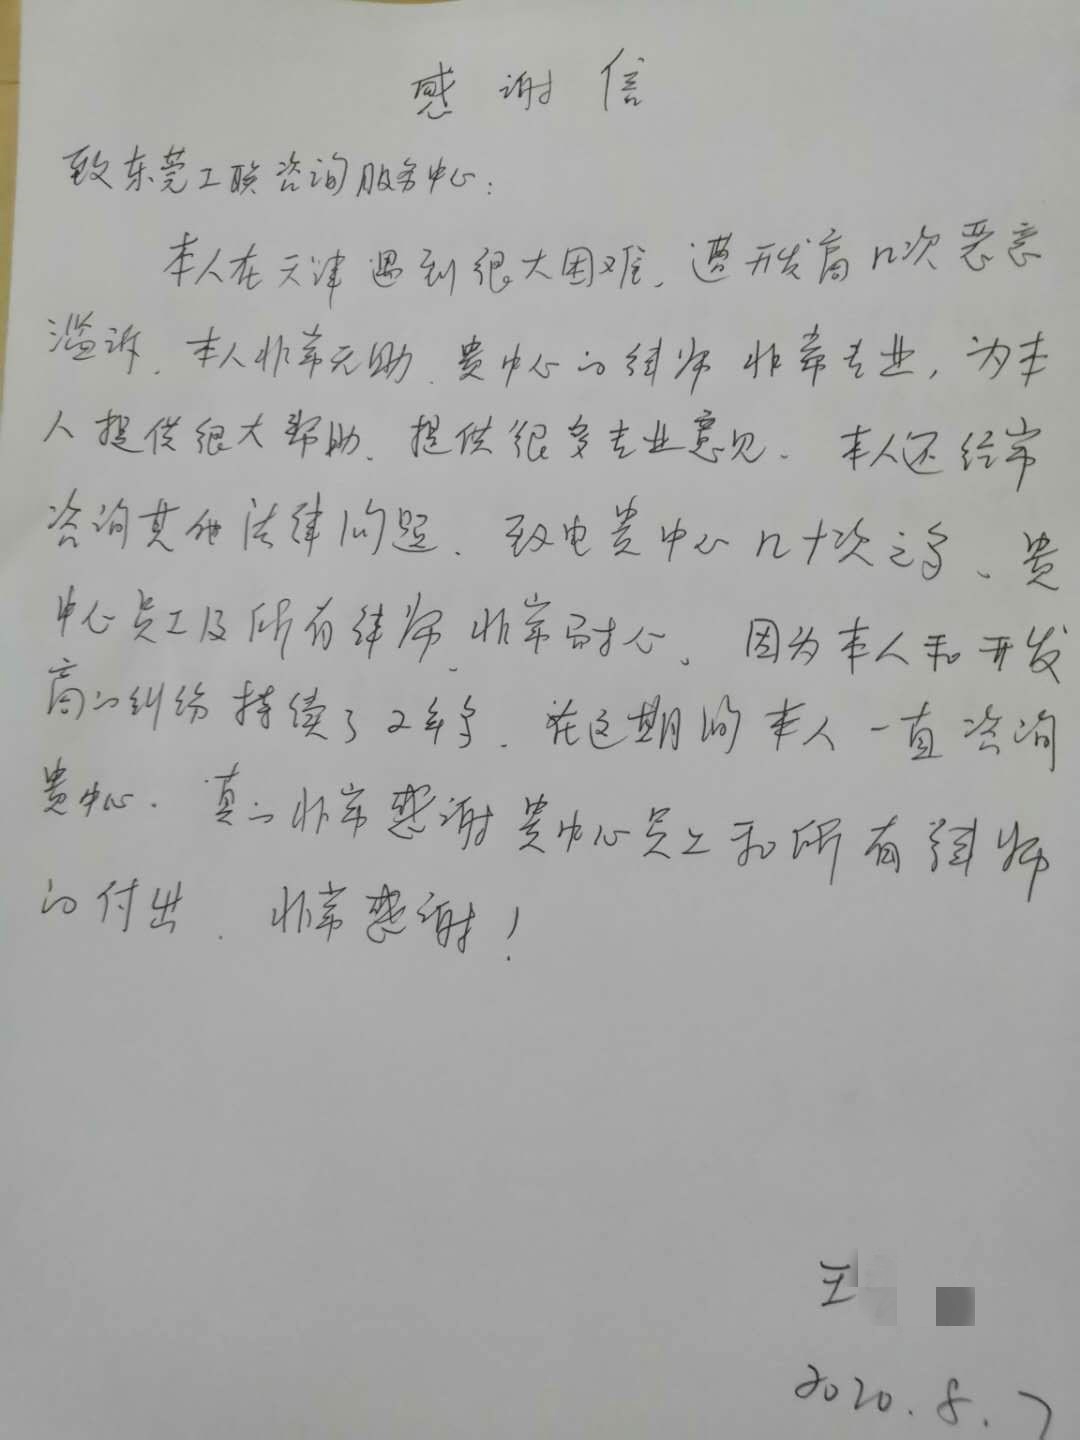 感谢信
致东莞工联咨询服务中心：
本人在天津遇到很大困难，遭开发商几次恶意
滥诉，本人非常无助，贵中心的律师非常专业，为本
人提供很大帮助，提供很多专业意见。本人还经常
咨询其他法律问题，致电贵中心几十次之多，贵
中心员工及所有律师，非常耐心。因为本人和开发
商的纠纷持续了2年多，在这期间本人一直咨询
贵中心。真的非常感谢贵中心员工和所有律师
的付出，非常感谢！
王
2020.8.7